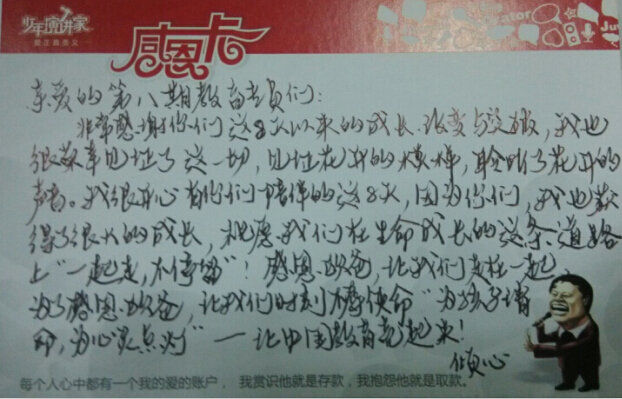 少年演讲家
感恩卡
亲爱的第八期教育专员们:
非常感谢你们这8天以来的成长、改变与突破,我也
很荣幸见证了这一切,见证花开的模样,聆听了花开的
声音。我很开心有你们陪伴的这8天,因为你们,我也获
得了很大的成长,祝愿我们在生命成长的这条道路
上“一起走,不停留”!感恩欧爸,让我们走在一起,
为了感恩欧爸,让我们时刻不辱使命“为孩子请
命,为心灵点灯”—让中国教育亮起来!
倾心
每个人心中都有一个我的爱的账户, 我赏识他就是存款,我抱怨他就是取款。